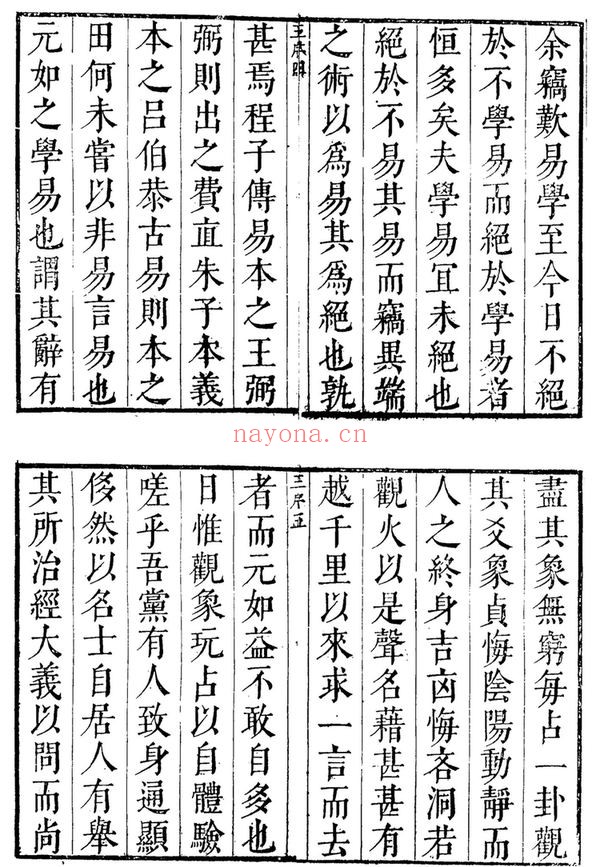 余竊歎易學至今日不絕
於不學易而絕於學易者
恒多矣夫學易宜未絕也
絕於不易其易而竊異端
之術以爲易其爲絕也孰
甚焉程子傳易本之王弼
弼則出之費直朱子本義
本之呂伯恭古易則本之
田何未嘗以非易言易也
元如之學易也謂其辭有
nayona.cn
盡其象無窮每占一卦觀
其爻象貞悔陰陽動靜而
人之終身吉凶悔吝洞若
觀火以是聲名藉甚甚有
越千里以來求一言而去
者而元如益不敢自多也
日惟觀象玩占以自體驗
嗟乎吾黨有人致身通顯
侈然以名士自居人有舉
其所治經大義以問而尚